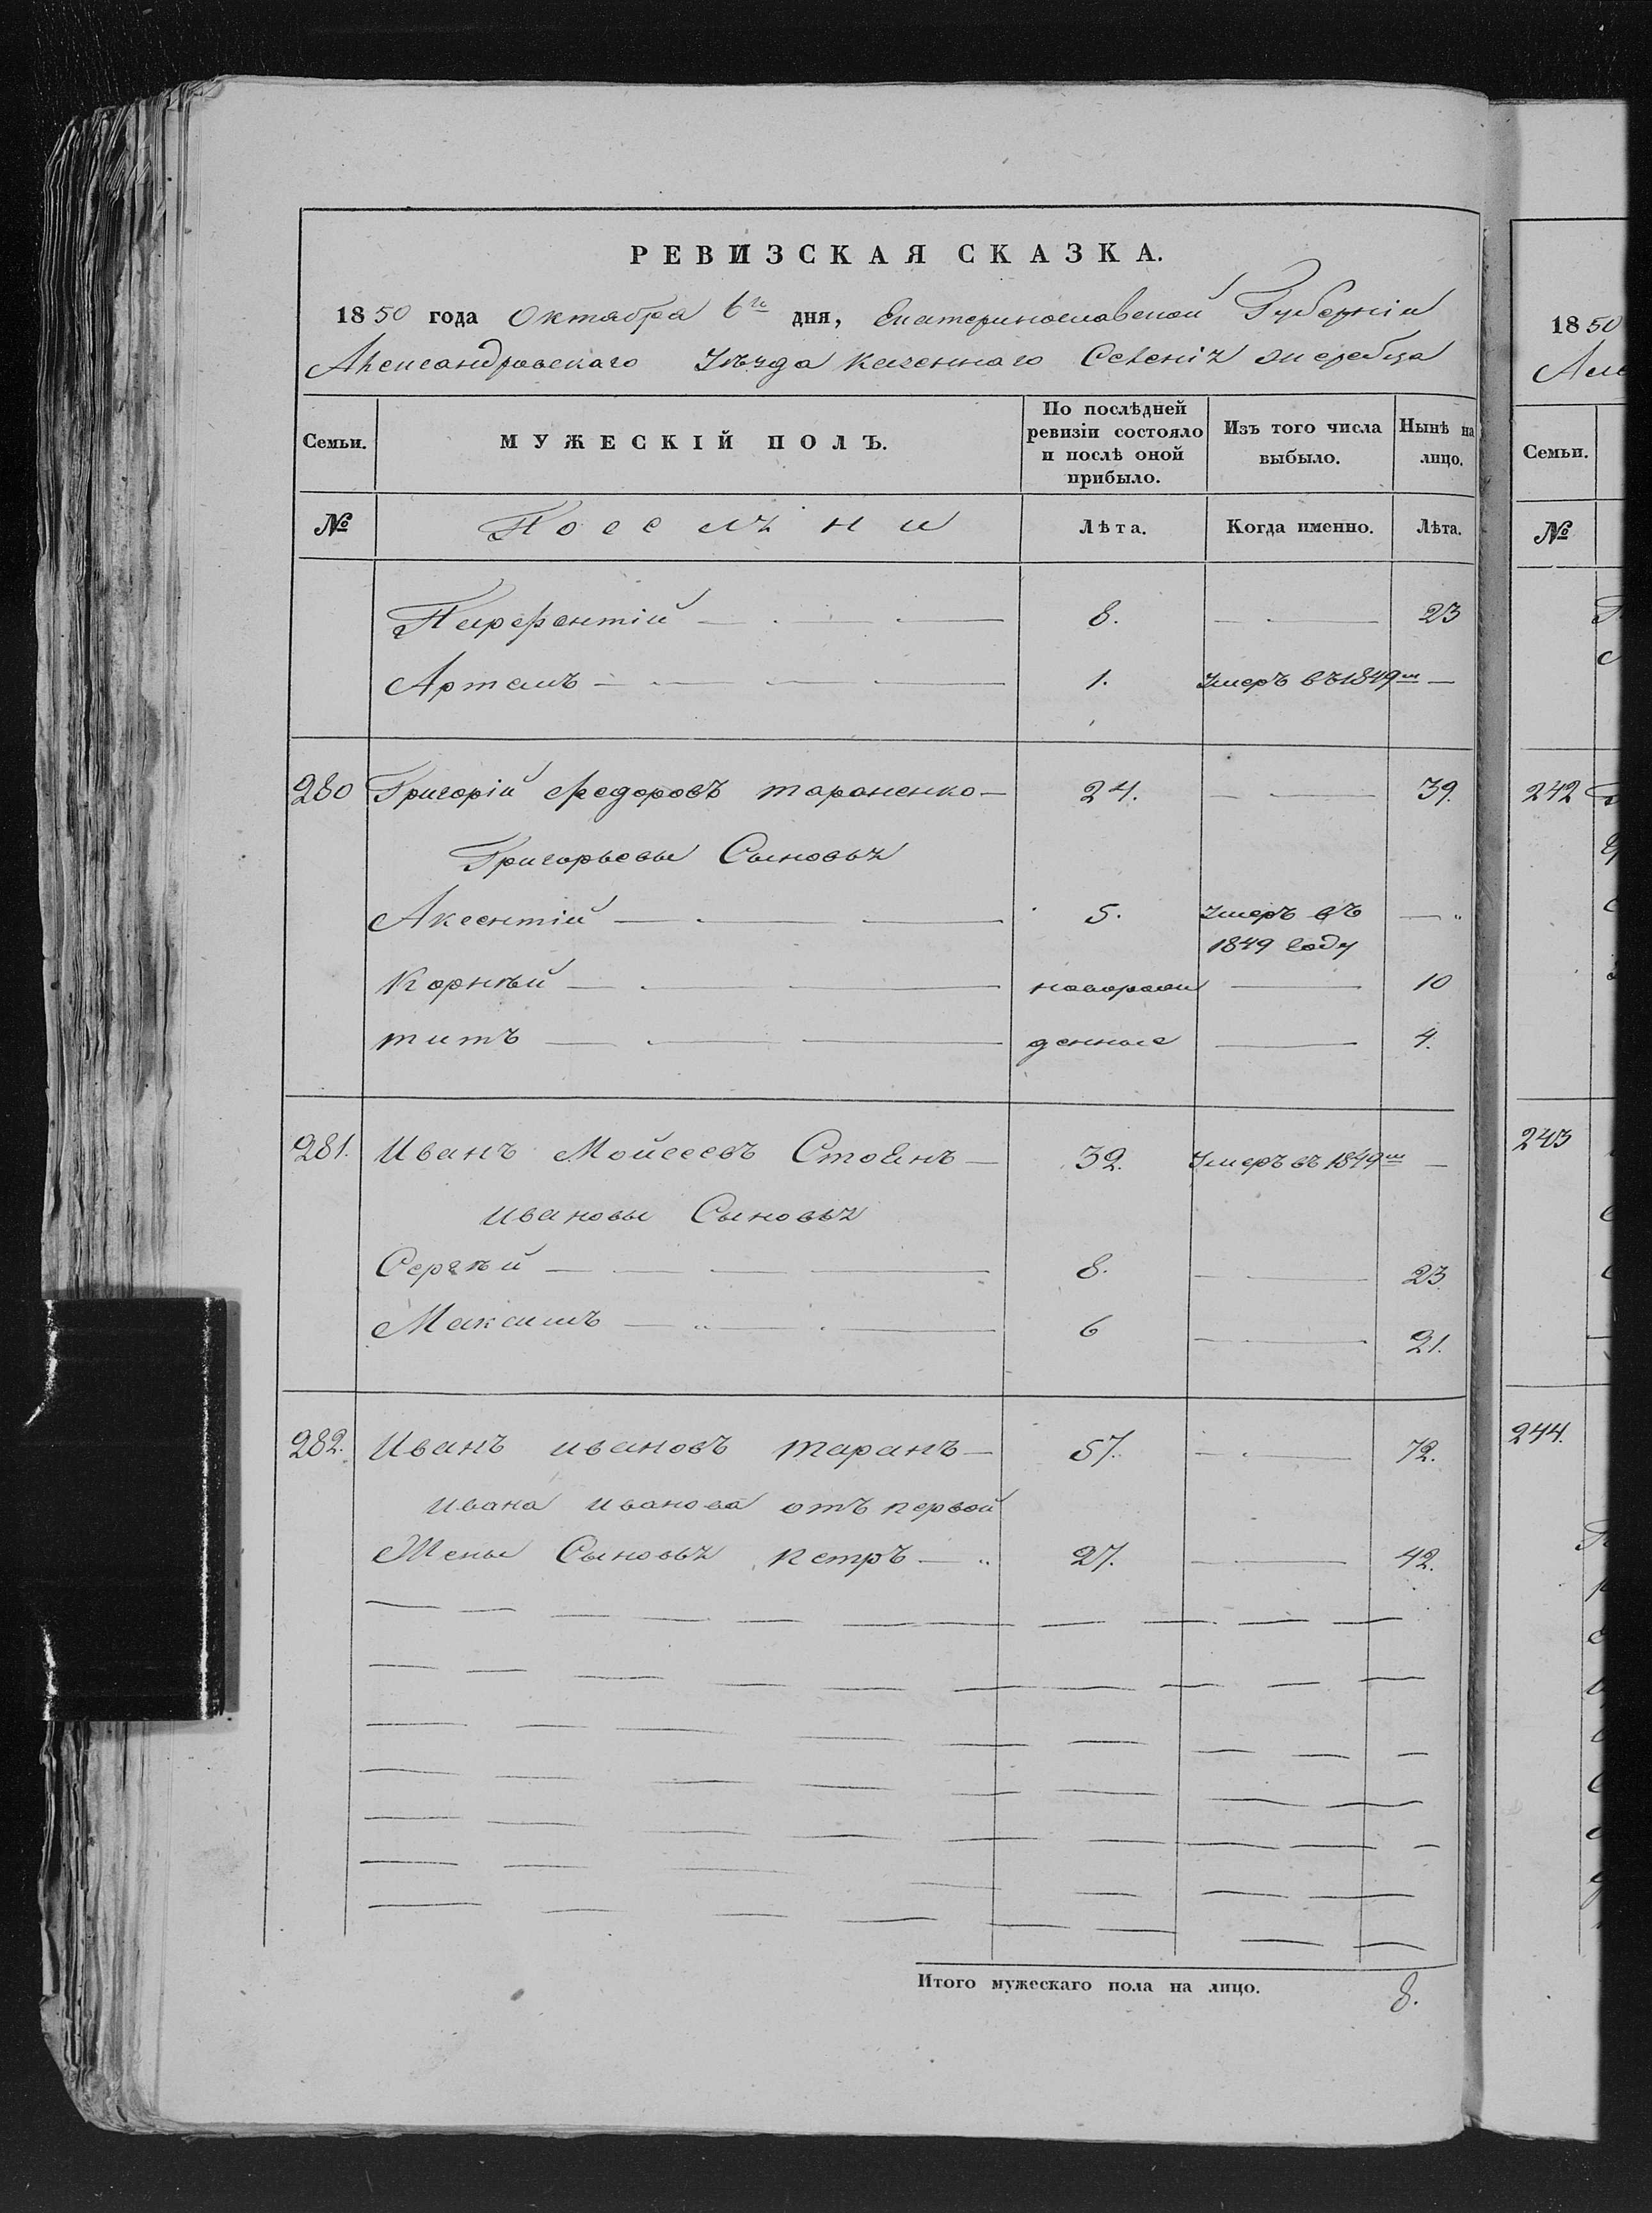 РЕВИЗСКАЯ СКАЗКА.
1850 года Октября 6го дня, Екатеринославской Губерніи
Александровскаго Уѣзда казеннаго Селенія Жеребца
Семьи. МУЖЕСКІЙ ПОЛЪ. По послѣдней ревизіи состояло и послѣ оной прибыло. Изъ того числа выбыло. Нынѣ на лицо.
№ Поселяни Лѣта. Когда именно. Лѣта.
Парфентій 8. 23
Артемъ 1. Умеръ въ 1849м
280 Григорій Федоровъ тараненко 24. 39.
Григорьевы Сыновья
Аксентій 5. Умеръ въ
1849 году
Корнѣй новорож 10
титъ денные 4.
281. Иванъ Мойсеевъ Стоянъ 32. Умеръ въ 1849м
ивановы Сыновья
Сергѣй 8. 23
Максимъ 6 21.
282. Иванъ ивановъ таранъ 57. 72.
ивана иванова отъ первой
Жены Сыновья петръ 27. 42.
Итого мужескаго пола на лицо. 8.
1850
Але
Семьи.
№
242
243
244.